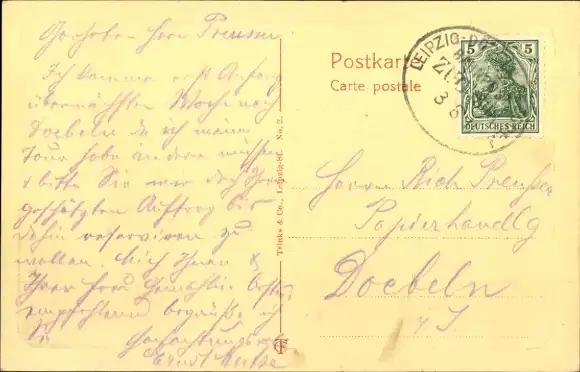 Geehrter Herr Preusser
Ich komme erst Anfang
übernächster Woche nach
Doebeln da ich meine
Tour habe ändern müssen
& bitte Sie mir den
geschätzten Auftrag bis
dahin reserviren zu
wollen. Mich Ihnen &
Ihrer Frau Gemahlin bestens
empfehlend begrüße ich
Sie
Hochachtungsvoll
Ernst
Trinks & Co., Leipzig-St. No. 2.
Postkarte
Carte postale
LEIPZIG-
5 5
DEUTSCHES REICH
Herrn Rich. Preußer
Papierhandlg
Doebeln
i/S.